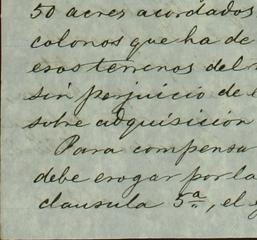 50 acres acordados
colonos que ha de
esos terrenos del
sin perjuicio de
sobre adquisicion
Para compensa
debe erogar por la
clausula 5ª, el